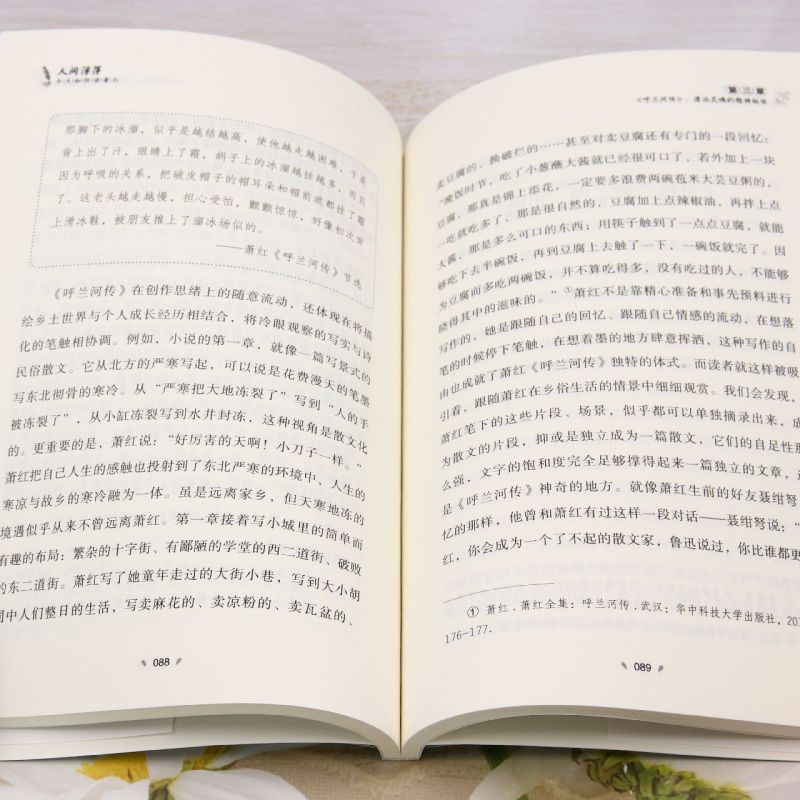 人间浮萍
那脚下的冰溜,似乎是越结越高,使他越走越困难,于是
背上出了汗,眼睛上了霜,胡子上的冰溜越挂越多,而且
因为呼吸的关系,把破皮帽子的帽耳朵和帽前遮都挂了霜
了。这老头越走越慢,担心受怕,颤颤惊惊,好像初次穿
上滑冰鞋,被朋友推上了溜冰场似的。
——萧红《呼兰河传》节选
《呼兰河传》在创作思绪上的随意流动,还体现在将描
绘乡土世界与个人成长经历相结合,将冷眼观察的写实与诗
化的笔触相协调。例如,小说的第一章,就像一篇写景式的
民俗散文。它从北方的严寒写起,可以说是花费漫天的笔墨
写东北彻骨的寒冷。从“严寒把大地冻裂了”写到“人的手
被冻裂了”,从小缸冻裂写到水井封冻,这种视角是散文化
的。更重要的是,萧红说:“好厉害的天啊!小刀子一样。”
萧红把自己人生的感触也投射到了东北严寒的环境中,人生的
寒凉与故乡的寒冷融为一体。虽是远离家乡,但天寒地冻的
境遇似乎从来不曾远离萧红。第一章接着写小城里的简单而
有趣的布局:繁杂的十字街、有鄙陋的学堂的西二道街、破败
的东二道街。萧红写了她童年走过的大街小巷,写到大小胡
同中人们整日的生活,写卖麻花的、卖凉粉的、卖瓦盆的、
088
第三章
《呼兰河传》:漂泊灵魂的精神皈依
卖豆腐的、换破烂的……甚至对卖豆腐还有专门的一段回忆:
“晚饭时节,吃了小葱蘸大酱就已经很可口了,若外加上一块
豆腐,那真是锦上添花,一定要多浪费两碗苞米大芸豆粥的,
一吃就吃多了,那是很自然的,豆腐加上点辣椒油,再拌上点
大酱,那是多么可口的东西;用筷子触到了一点点豆腐,就能
够吃下去半碗饭,再到豆腐上去触了一下,一碗饭就完了。因
为豆腐而多吃两碗饭,并不算吃得多,没有吃过的人,不能够
晓得其中的滋味的。”①萧红不是靠精心准备和事先预料进行
写作的,她是跟随自己的回忆、跟随自己情感的流动,在想落
笔的时候停下笔触,在想着墨的地方肆意挥洒,这种写作的自
由也成就了萧红《呼兰河传》独特的体式。而读者就这样被吸
引着,跟随萧红在乡俗生活的情景中细细观赏。我们会发现,
萧红笔下的这些片段、场景,似乎都可以单独摘录出来,成
为散文的片段,抑或是独立成为一篇散文,它们的自足性那
么强,文字的饱和度完全足够撑得起来一个独立的文章,这
是《呼兰河传》神奇的地方。就像萧红生前的好友聂绀弩回
忆的那样,他曾和萧红有过这样一段对话——聂绀弩说:“萧
红,你会成为一个了不起的散文家,鲁迅说过,你比谁都更
① 萧红.萧红全集:呼兰河传.武汉:华中科技大学出版社,201
176-177.
089